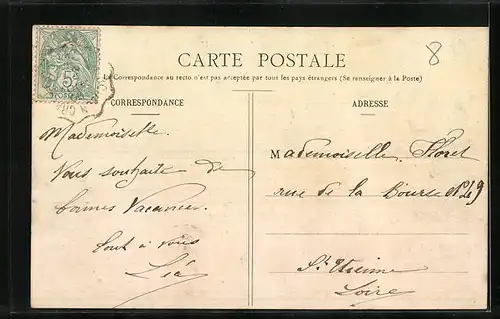 8
CARTE POSTALE
La Correspondance au recto n'est pas acceptée par tout les pays étrangers (Se renseigner à la Poste)
CORRESPONDANCE
ADRESSE
5
Mademoiselle.
Vous souhaite de
bonnes Vacances.
tout à vous
Léa
Mademoiselle Floret
rue de la Bourse N° 49
St Etienne
Loire